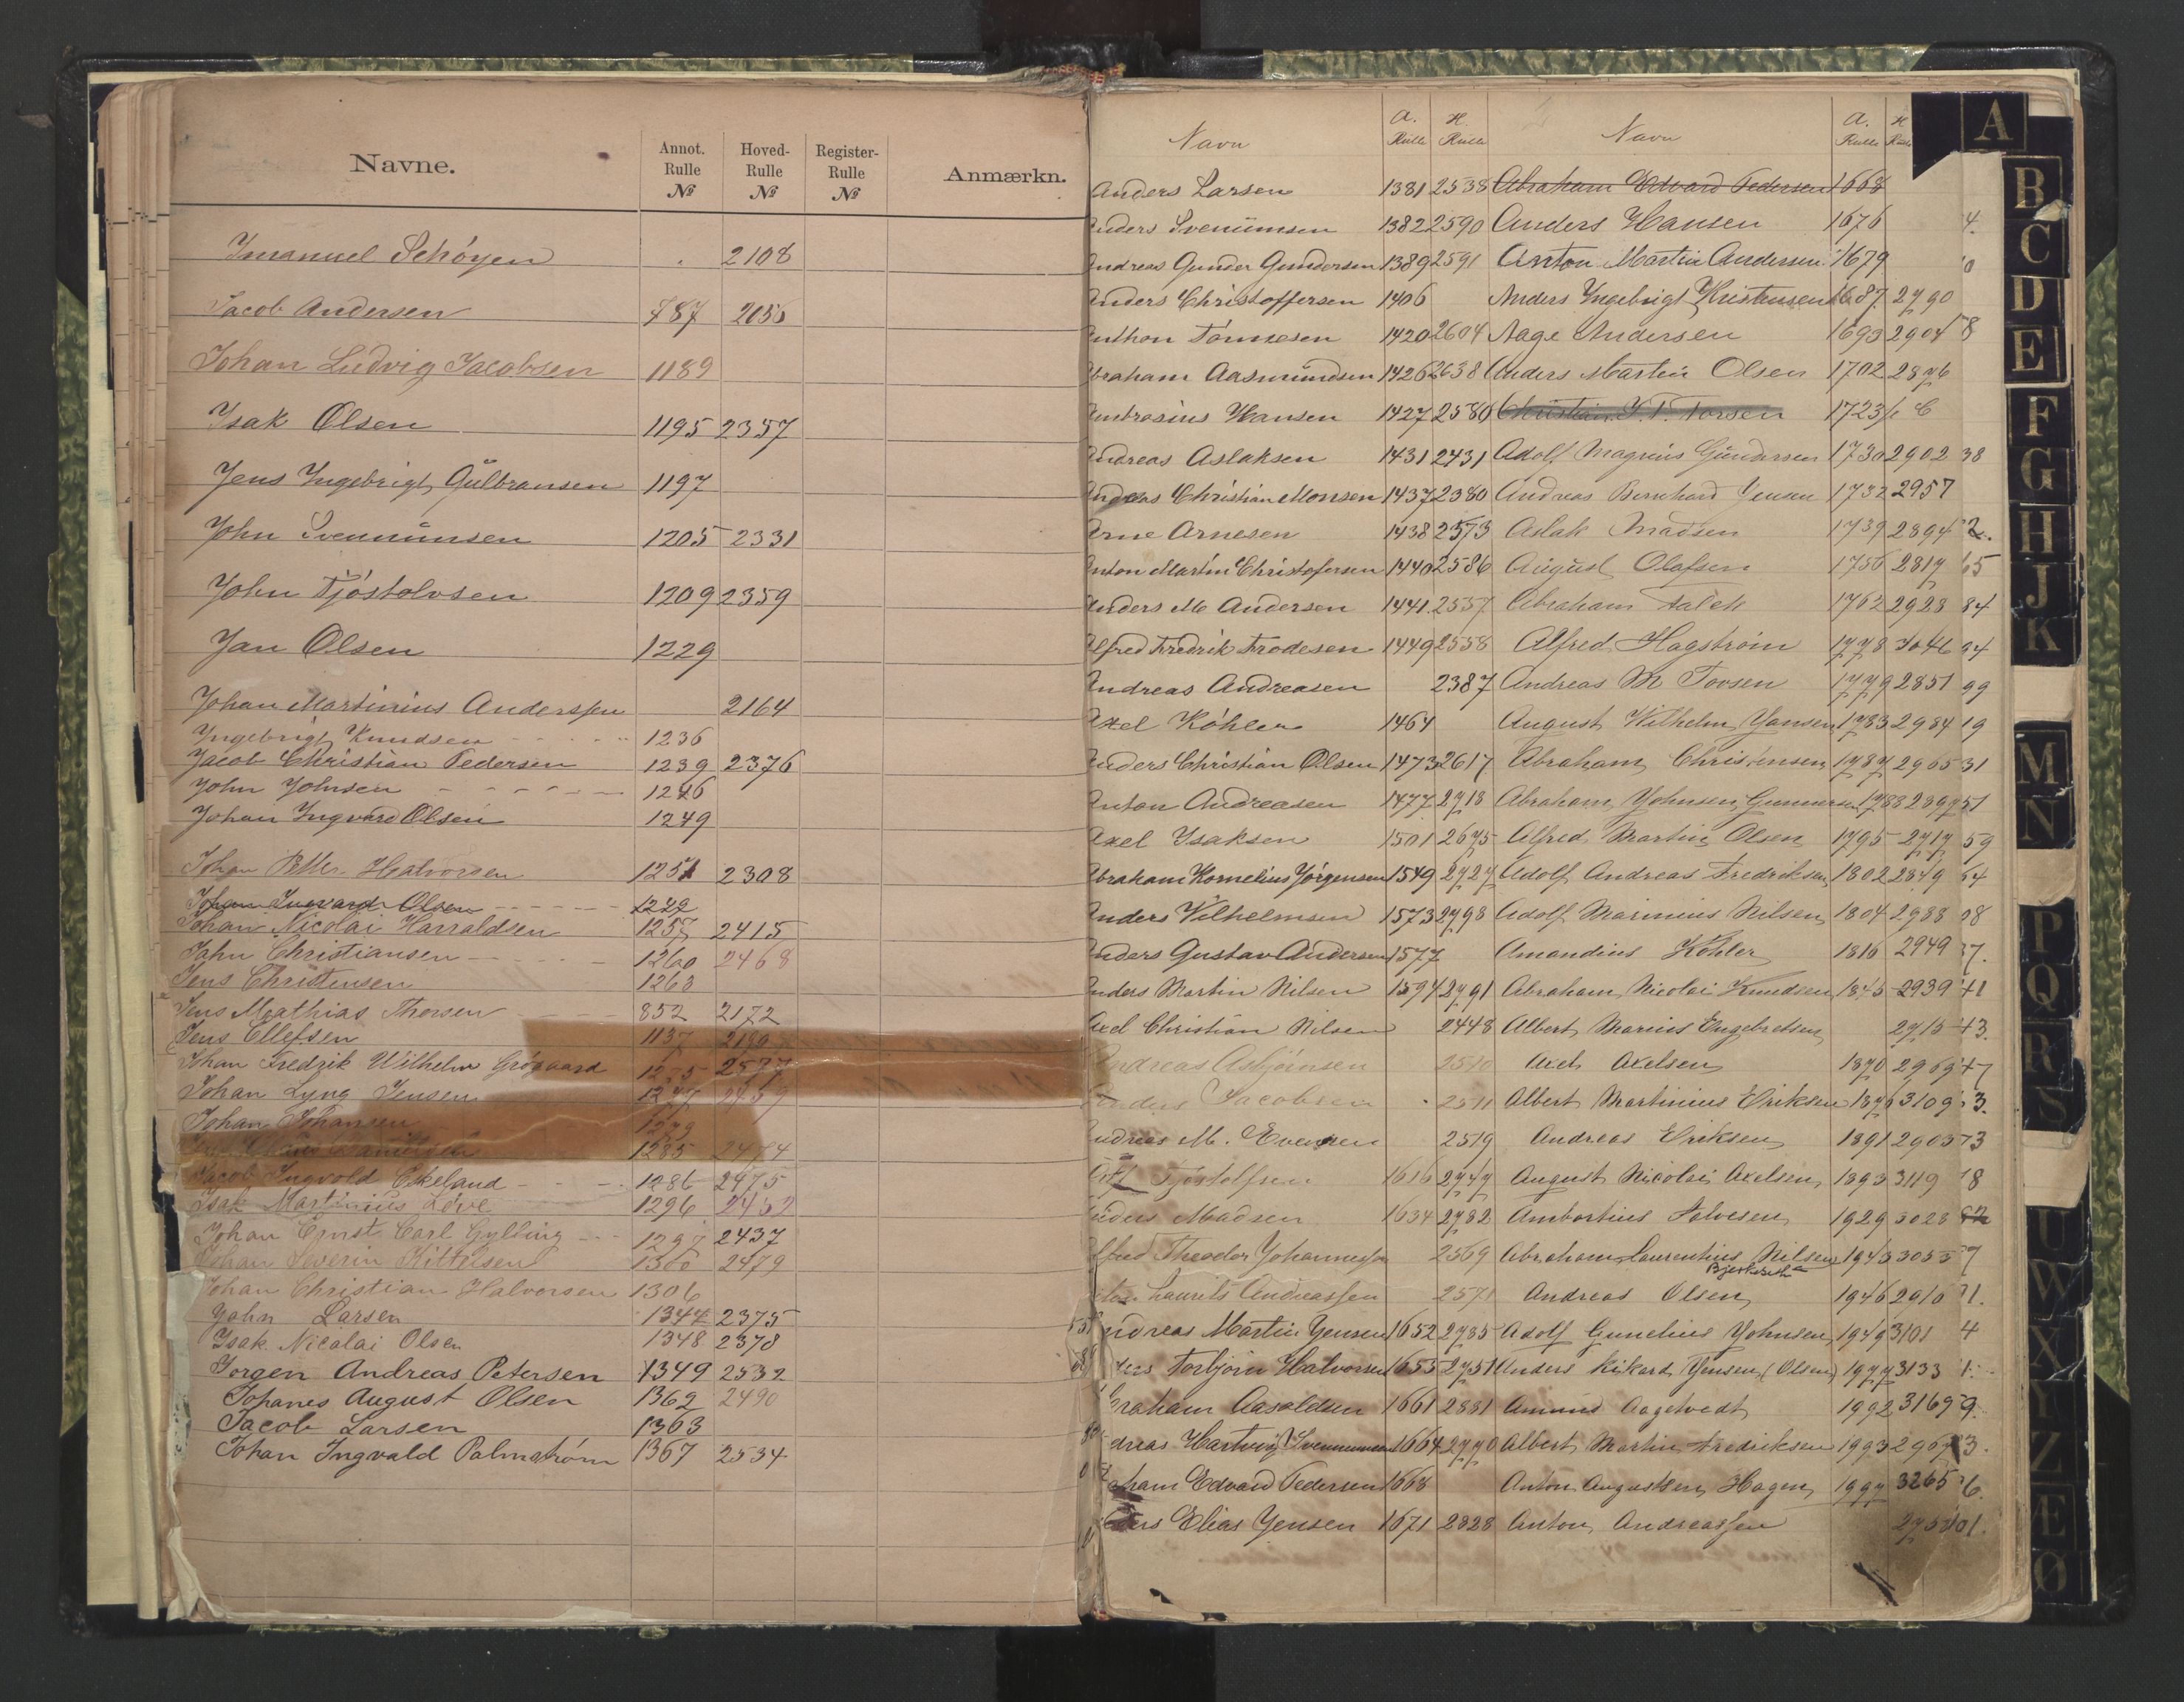 Navne.
Annot. Rulle №
Hoved- Rulle №
Register- Rulle №
Anmærkn.
Imanuel Schöyen 2108
Jacob Andersen 787
Johan Ludvig Jacobsen 1189
Isak Olsen 1195 2357
Jens Ingebrigt Gulbransen 1197
John Svenumsen 1205 2331
John Tjöstolvsen 1209 2359
Jan Olsen 1229
Johan Martinius Anderssen 2164
Ingebrigt Knudsen 1236
Jacob Christian Pedersen 1239 2376
John Johnsen
Johan Ingvard Olsen 1249
Johan Petter Halvorsen 1251 2308
Johan Ingvard Olsen
Johan Nicolai Harraldsen 1257 2415
John Christiansen 1260 2468
Jens Christensen 1263
Jens Mathias Thorsen 852 2172
Jens Ellefsen 1137
Johan Fredrik Wilhelm Grögaard
Johan Lyng Jensen
Johan Johansen 1279
1285
Jacob Ingvold Eikeland 1286 2475
Isak Martinius Löve 1296
Johan Ernst Carl Gylling 1297 2437
Johan Severin Kittelsen 1300 2479
Johan Christian Halvorsen 1306
John Larsen 1344 2375
Isak Nicolai Olsen 1348 2378
Jorgen Andreas Petersen 1349 2532
Johanes August Olsen 1362 2490
Jacob Larsen 1363
Johan Ingvald Palmström 1367 2534
Navn A. Rulle H. Rulle Navn A. Rulle H. Rulle
Anders Larsen 1381 2538 Abraham Edvard Pedersen 1668
Anders Svenumsen 1382 2590 Anders Hansen 1676
Andreas Gunder Gundersen 1389 2591 Anton Martin Andersen 1679
Anders Christoffersen 1406 Anders Ingebrigt Kristensen 1687 2790
Anthon Tönnesen 1420 2604 Aage Andersen 1693 2904
Abraham Aasmundsen 1426 2638 Anders Martin Olsen 1702 2876
Ambrosius Hansen 1427 2580 1723
Andreas Aslaksen 1431 2431 Adolf Magnus Gundersen 1730 2902 38
Andreas Christian Monsen 1437 2380 Andreas Bernhard Jensen 1732 2957
Arne Arnesen 1438 2573 Aslak Madsen 1739 2894
Anton Martin Christofersen 1440 2586 August Olafsen 1756 2817
Anders M Andersen 1441 2557 Abraham Falck 1762 2928 84
Alfred Fredrik Frodesen 1449 2558 Alfred Hagström 1778 3046 94
Andreas Andreasen 2387 Andreas M Tovsen 1779 2851 99
Axel Köhler 1464 August Wilhelm Jansen 1783 2984 19
Anders Christian Olsen 1473 2617 Abraham Christensen 1787 2965 31
Anton Andreasen 1477 2718 Abraham Johnsen Gunnersen 1788 2897 51
Axel Isaksen 1501 2675 Alfred Martin Olsen 1795 2717 59
Abraham Kornelius Jörgensen 1549 2727 Adolf Andreas Fredriksen 1802 2849 64
Anders Vilhelmsen 1573 2798 Adolf Marinius Nilsen 1804 2988
Anders Gustav Andersen 1577 Amandius Köhler 1816 2949
Anders Martin Nilsen 1594 2791 Abraham Nicolai Knudsen 1845 2939
Axel Christian Nilsen 2448 Albert Marius Engebretsen 2715
Andreas Asbjönsen 2510 Axel Axelsen 1870 2969
Anders Jacobsen 2511 Albert Martinius Eriksen 1876 3109
Andreas M. Evensen 2519 Andreas Eriksen 1891 2905
Tjöstolfsen 1616 2747 August Nicolai Axelsen 1893 3119
Anders Madsen 1634 2782 Ambortius Salvesen 1929 3028
Alfred Theodor Johannessen 2569 Abraham Laurentius Nilsen 1943 3055
Laurits Andreassen 2571 Andreas Olsen 1946 2910
Andreas Martin Jensen 1652 2785 Adolf Gunelius Johnsen 1949 3101 4
Torbjörn Halvorsen 1655 2751 Anders Rikard Jensen (Olsen) 1977 3133
Abraham Aasoldsen 1661 2881 Amund Aagetvedt 1992 3169
Andreas Hartvig Svenumsen 1664 2770 Albert Martin Fredriksen 1993 2967
Abraham Edvard Pedersen 1668 Anton Augustsen Hagen 1997 3265
Elias Jensen 1671 2828 Anton Andreassen
A
B
C
D
E
F
G
H
J
K
M
N
P
Q
R
S
U
W
X
Y
Z
Æ
Ø